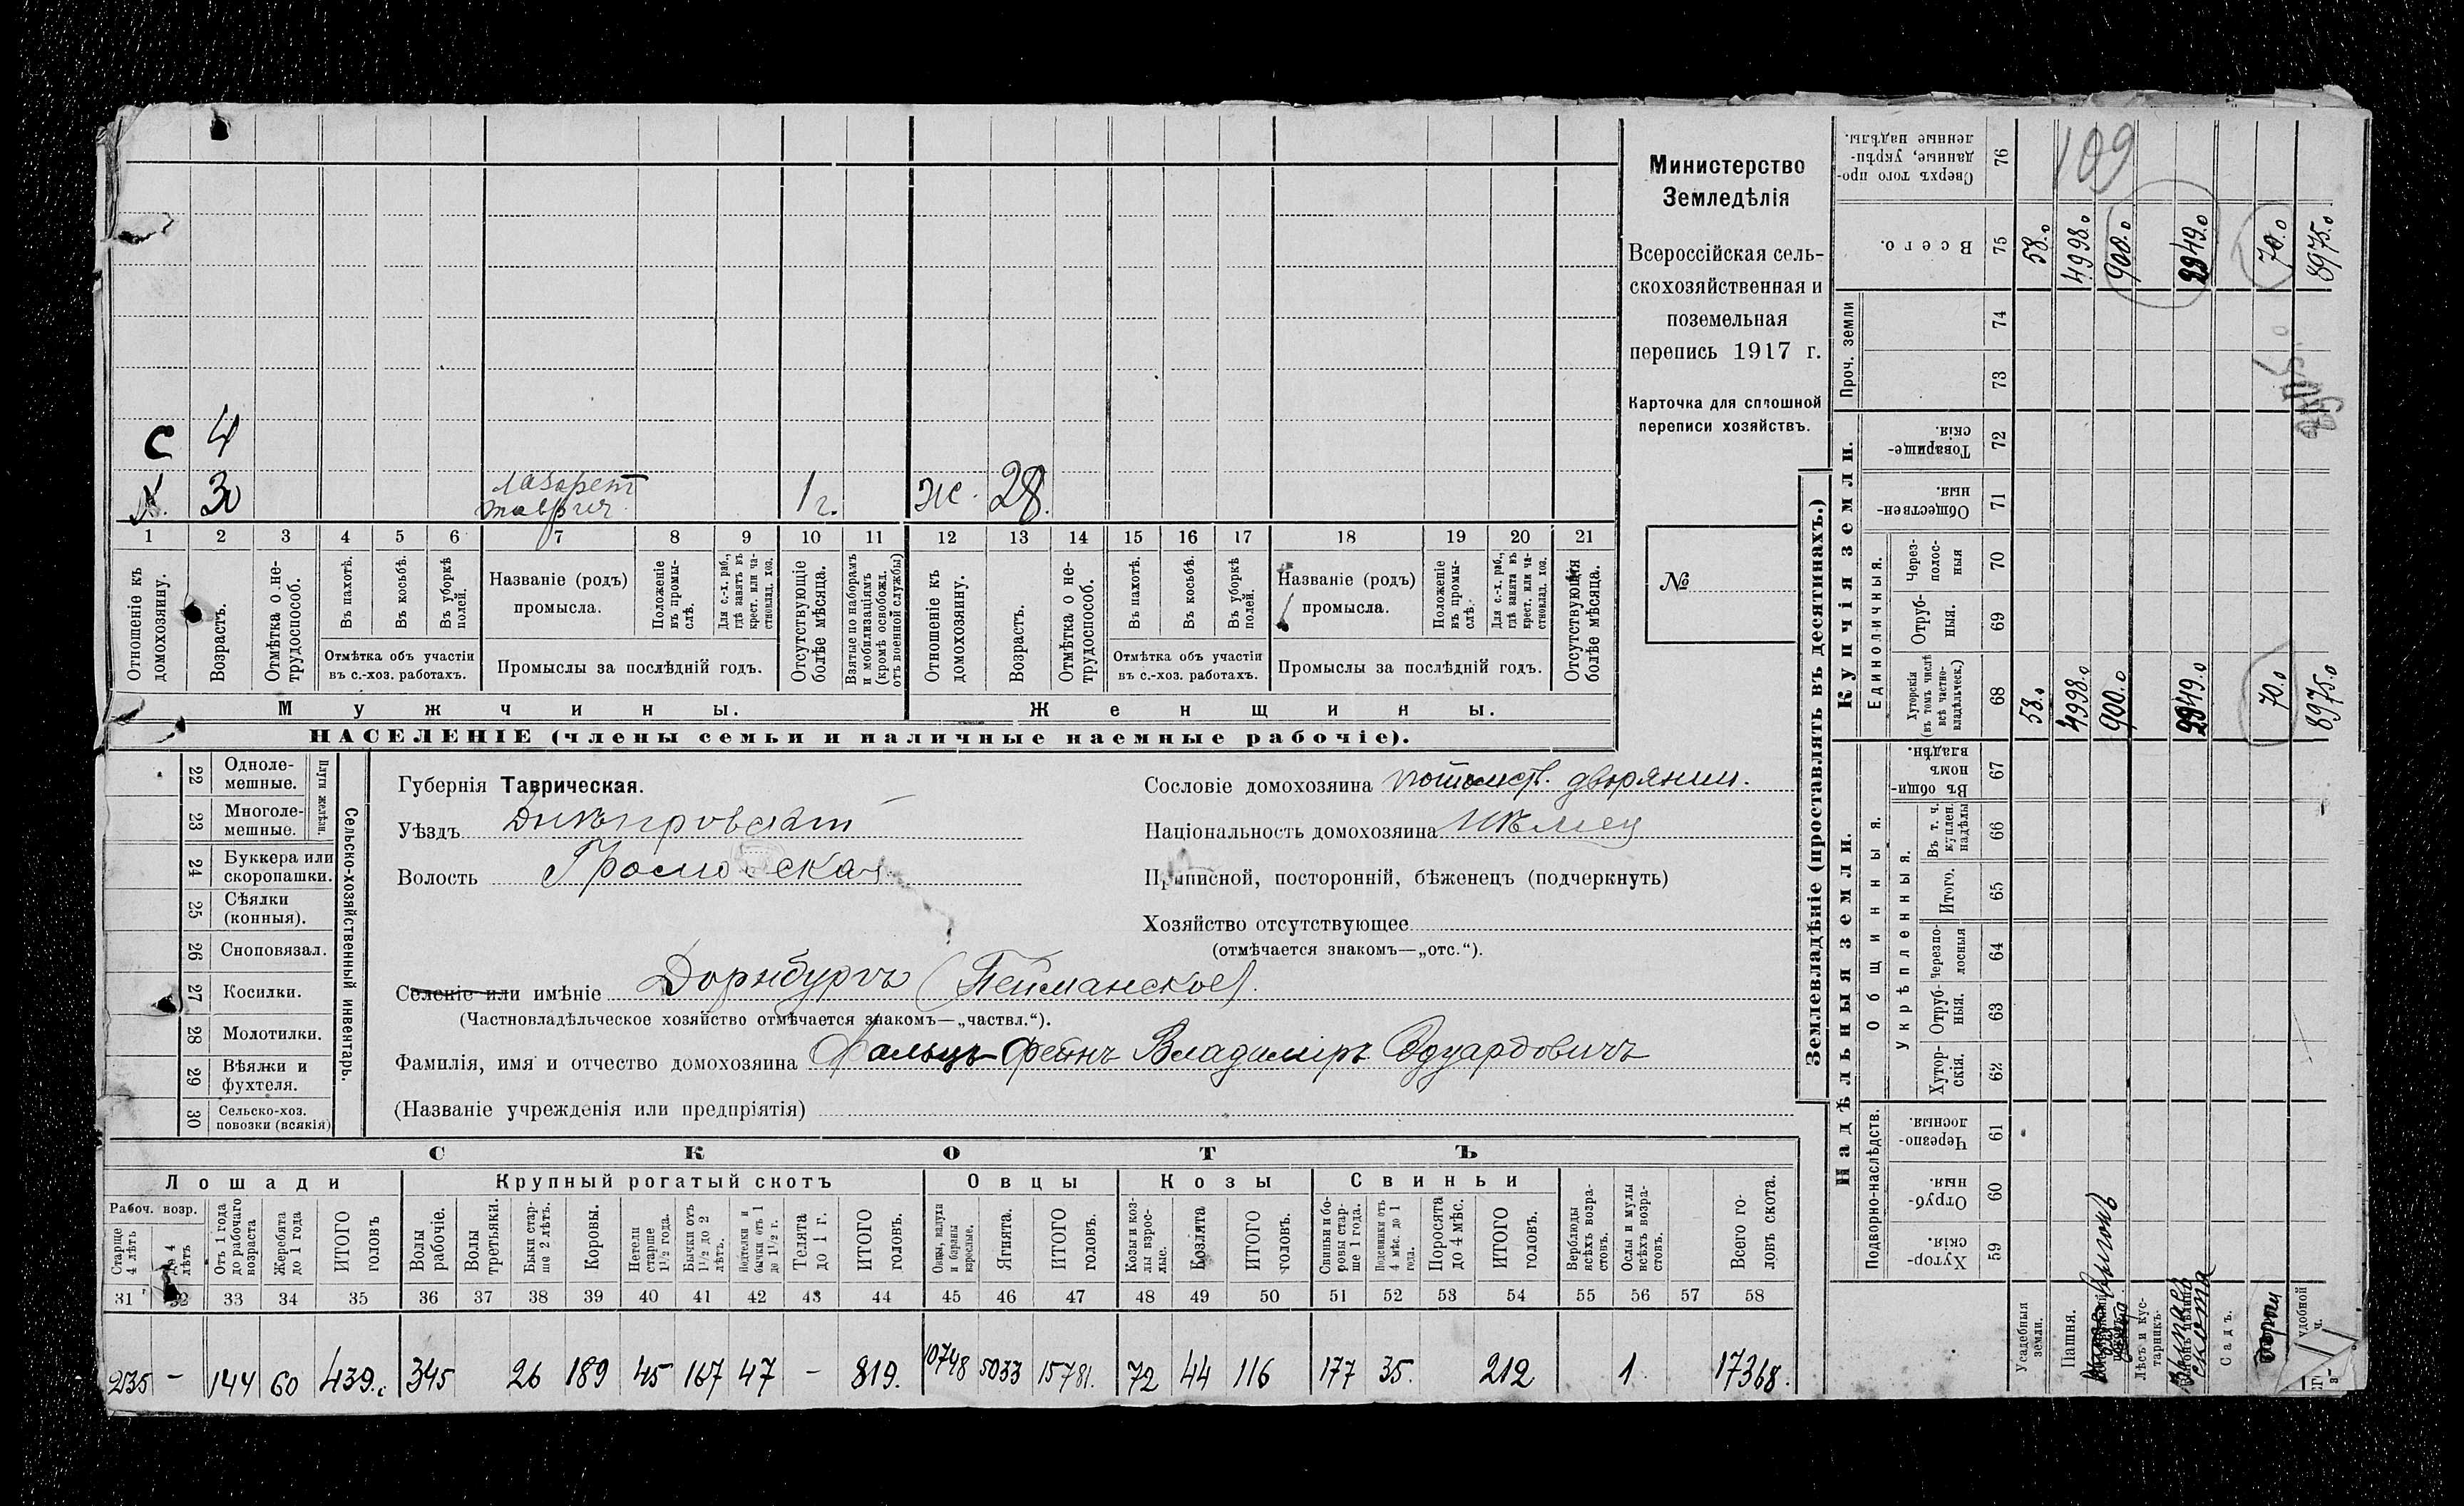 С 4
Х. 30 лазарет 1 г. ж. 28.
1 2 3 4 5 6 7 8 9 10 11 12 13 14 15 16 17 18 19 20 21
Отношеніе къ домохозяину.
Возрастъ.
Отмѣтка о не-
трудоспособ.
Въ пахотѣ.
Въ косьбѣ.
Въ уборкѣ
полей.
Отмѣтка объ участіи
въ с.-хоз. работахъ.
Названіе (родъ)
промысла.
Положеніе
въ промы-
слѣ.
Для с.-х. раб.,
гдѣ занятъ въ
крест. или ча-
стновлад. хоз.
Промыслы за послѣдній годъ.
Отсутствующіе
болѣе мѣсяца.
Взятые по наборамъ
и мобилизаціямъ
(кромѣ освобожд.
отъ военной службы)
Отношеніе къ
домохозяину.
Возрастъ.
Отмѣтка о не-
трудоспособ.
Въ пахотѣ.
Въ косьбѣ.
Въ уборкѣ
полей.
Отмѣтка объ участіи
въ с.-хоз. работахъ.
Названіе (родъ)
промысла.
Положеніе
въ промы-
слѣ.
Для с.-х. раб.,
гдѣ занята въ
крест. или ча-
стновлад. хоз.
Промыслы за послѣдній годъ.
Отсутствующія
болѣе мѣсяца.
Мужчины. Женщины.
НАСЕЛЕНІЕ (члены семьи и наличные наемные рабочіе).
Министерство
Земледѣлія
Всероссійская сель-
скохозяйственная и
поземельная
перепись 1917 г.
Карточка для сплошной
переписи хозяйствъ.
№
22 Одноле-
мешные.
23 Многоле-
мешные.
Плуги желѣзн.
24 Буккера или
скоропашки.
25 Сѣялки
(конныя).
26 Сноповязал.
27 Косилки.
28 Молотилки.
29 Вѣялки и
фухтеля.
30 Сельско-хоз.
повозки (всякія)
Сельско-хозяйственный инвентарь.
Губернія Таврическая.
Уѣздъ Днѣпровскій
Волость Громовская
Сословіе домохозяина потомст. дворянин.
Національность домохозяина Нѣмец
Приписной, посторонній, бѣженецъ (подчеркнуть)
Хозяйство отсутствующее
(отмѣчается знакомъ—„отс.“).
Селеніе или имѣніе Дорнбургъ (Теиманское).
(Частновладѣльческое хозяйство отмѣчается знакомъ—„частвл.“).
Фамилія, имя и отчество домохозяина Фальцъ-Фейнъ Владиміръ Эдуардовичъ
(Названіе учрежденія или предпріятія)
СКОТЪ
Лошади Крупный рогатый скотъ Овцы Козы Свиньи
Рабоч. возр.
Старше
4 лѣтъ
До 4
лѣтъ
Отъ 1 года
до рабочаго
возраста
Жеребята
до 1 года
ИТОГО
головъ
Волы
рабочіе.
Волы
третьяки.
Быки стар-
ше 2 лѣтъ.
Коровы.
Нетели
старше
1½ года.
Бычки отъ
1½ до 2
лѣтъ.
Подтелки и
бычки отъ 1
до 1½ г.
Телята
до 1 г.
ИТОГО
головъ.
Овцы, валухи
и бараны
взрослые.
Ягнята.
ИТОГО
головъ.
Козы и коз-
лы взрос-
лые.
Козлята
ИТОГО
головъ.
Свиньи и бо-
ровы стар-
ше 1 года.
Подсвинки отъ
4 мѣс. до 1
года.
Поросята
до 4 мѣс.
ИТОГО
головъ.
Верблюды
всѣхъ возра-
стовъ.
Ослы и мулы
всѣхъ возра-
стовъ.
Всего го-
ловъ скота.
31 32 33 34 35 36 37 38 39 40 41 42 43 44 45 46 47 48 49 50 51 52 53 54 55 56 57 58
235 - 144 60 439. 345 26 189 45 167 47 - 819. 10748 5033 15781. 72 44 116 177 35. 212 1 17368.
Землевладѣніе (проставлять въ десятинахъ.)
Надѣльныя земли. Купчія земли. Проч. земли
Подворно-наслѣдств. Общинныя. Единоличныя.
Укрѣпленныя.
Хутор-
скія.
59
Отруб-
ныя.
60
Черезпо-
лосныя
61
Хутор-
скія.
62
Отруб-
ныя.
63
Черезпо-
лосныя
64
Итого.
65
Въ т. ч.
куплен.
надѣлы
66
Въ общи-
номъ
владѣн.
67
Хуторскія
(въ томъ числѣ
всѣ частно-
владѣльческ.)
68
Отруб-
ныя.
69
Через-
полос-
ныя
70
Обществен-
ныя.
71
Товарище-
скія.
72
73
74
Всего.
75
Сверхъ того про-
данные, укрѣп-
ленные надѣлы.
76
109
Усадебныя
земли.
58.0 58.0
Пашня.
4998.0 4998.0
Выгонъ
900.0 900.0
Лѣсъ и кус-
тарникъ.
скота
2949.0 2949.0
Садъ.
70.0 70.0
удобной
8975.0 8975.0